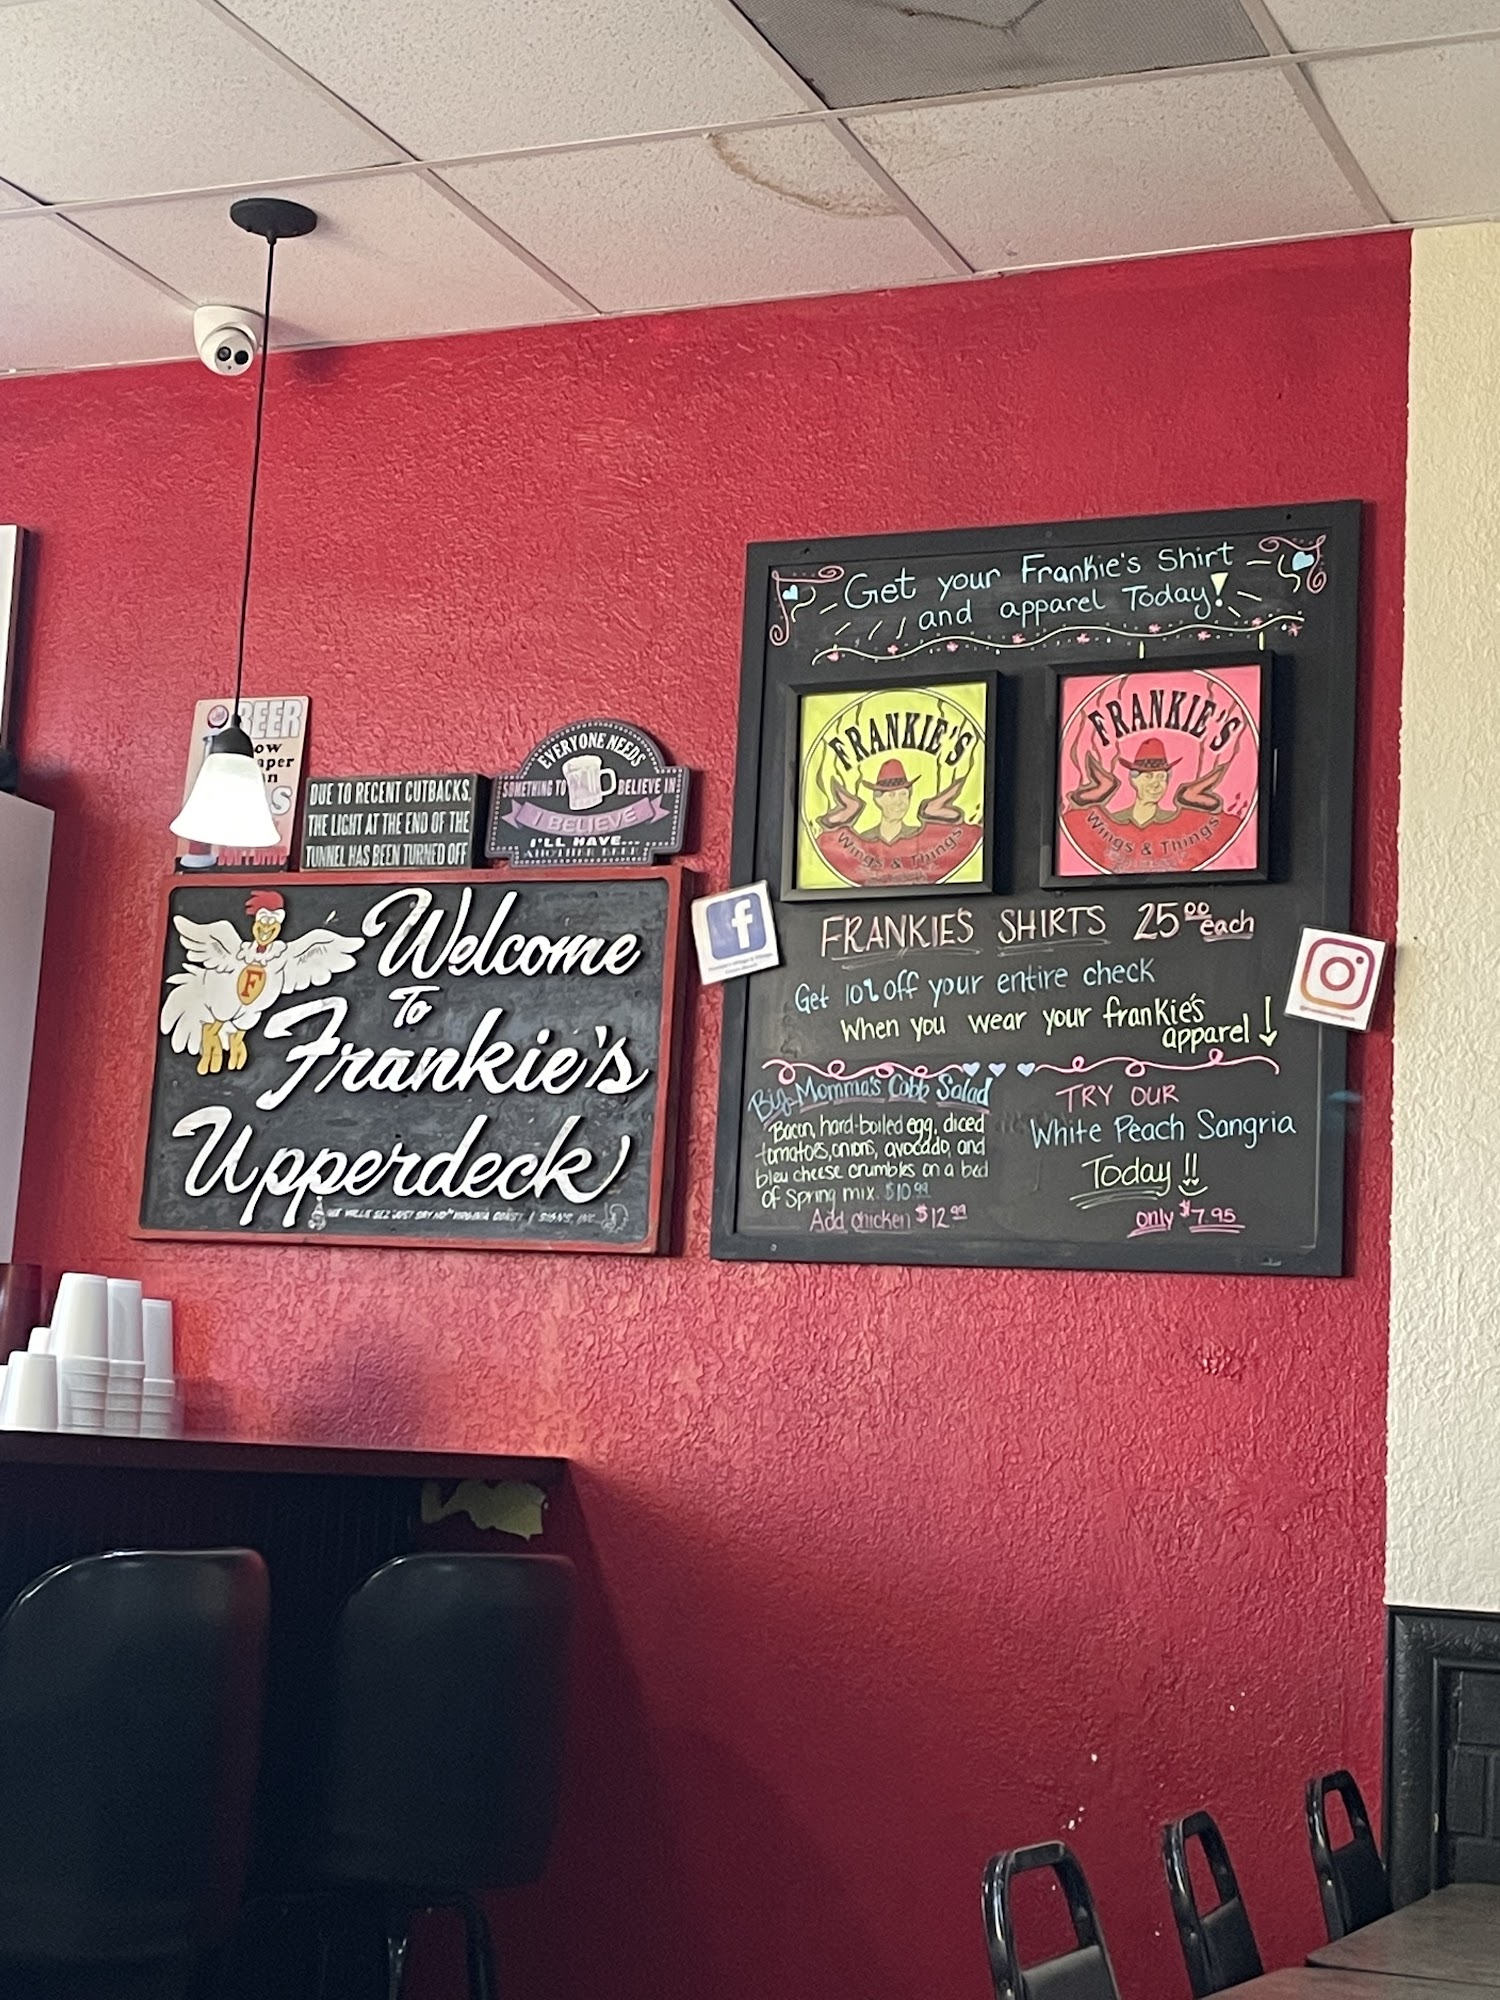 BEER
DUE TO RECENT CUTBACKS,
THE LIGHT AT THE END OF THE
TUNNEL HAS BEEN TURNED OFF
EVERYONE NEEDS
SOMETHING TO BELIEVE IN
I BELIEVE
I'LL HAVE...
ANOTHER BEER
F
Welcome
To
Frankie's
Upperdeck
Get your Frankie's Shirt
and apparel Today!
FRANKIE'S
Wings & Things
FRANKIE'S
Wings & Things
f
FRANKIE'S SHIRTS 25.00 each
Get 10% off your entire check
When you wear your frankie's
apparel
Big Momma's Cobb Salad
Bacon, hard-boiled egg, diced
tomatoes, onions, avocado, and
bleu cheese crumbles on a bed
of Spring mix. $10.99
Add chicken $12.99
TRY OUR
White Peach Sangria
Today!!
only $7.95